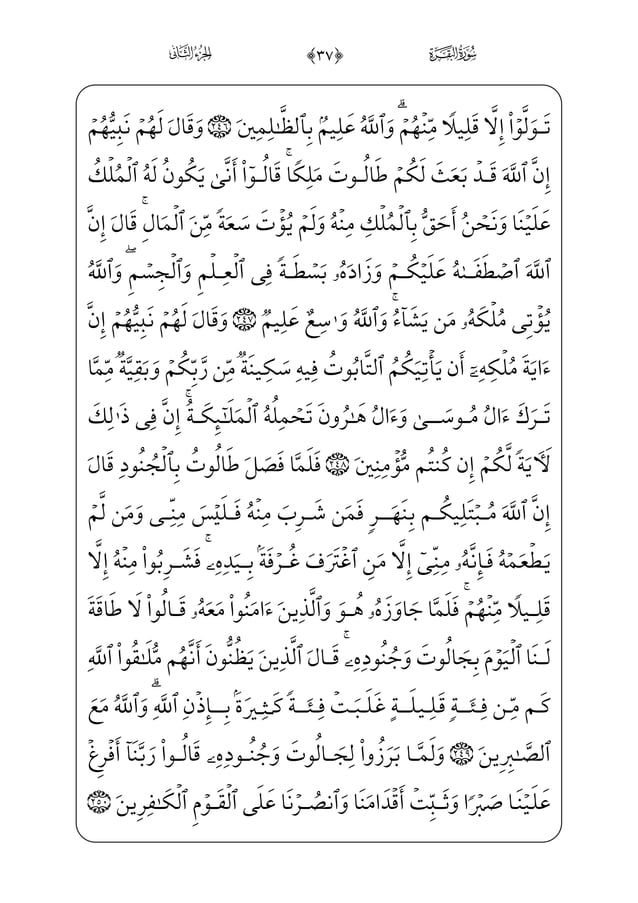 سُورَةُ البَقَرَةِ ﴿٣٧﴾ الجُزْءُ الثَّانِي
تَوَلَّوۡاْ إِلَّا قَلِيلٗا مِّنۡهُمۡۚ وَٱللَّهُ عَلِيمُۢ بِٱلظَّٰلِمِينَ ٢٤٦ وَقَالَ لَهُمۡ نَبِيُّهُمۡ
إِنَّ ٱللَّهَ قَدۡ بَعَثَ لَكُمۡ طَالُوتَ مَلِكٗاۚ قَالُوٓاْ أَنَّىٰ يَكُونُ لَهُ ٱلۡمُلۡكُ
عَلَيۡنَا وَنَحۡنُ أَحَقُّ بِٱلۡمُلۡكِ مِنۡهُ وَلَمۡ يُؤۡتَ سَعَةٗ مِّنَ ٱلۡمَالِۚ قَالَ إِنَّ
ٱللَّهَ ٱصۡطَفَىٰهُ عَلَيۡكُمۡ وَزَادَهُۥ بَسۡطَةٗ فِي ٱلۡعِلۡمِ وَٱلۡجِسۡمِۖ وَٱللَّهُ
يُؤۡتِي مُلۡكَهُۥ مَن يَشَآءُۚ وَٱللَّهُ وَٰسِعٌ عَلِيمٞ ٢٤٧ وَقَالَ لَهُمۡ نَبِيُّهُمۡ إِنَّ
ءَايَةَ مُلۡكِهِۦٓ أَن يَأۡتِيَكُمُ ٱلتَّابُوتُ فِيهِ سَكِينَةٞ مِّن رَّبِّكُمۡ وَبَقِيَّةٞ مِّمَّا
تَرَكَ ءَالُ مُوسَىٰ وَءَالُ هَٰرُونَ تَحۡمِلُهُ ٱلۡمَلَٰٓئِكَةُۚ إِنَّ فِي ذَٰلِكَ
لَأٓيَةٗ لَّكُمۡ إِن كُنتُم مُّؤۡمِنِينَ ٢٤٨ فَلَمَّا فَصَلَ طَالُوتُ بِٱلۡجُنُودِ قَالَ
إِنَّ ٱللَّهَ مُبۡتَلِيكُم بِنَهَرٖ فَمَن شَرِبَ مِنۡهُ فَلَيۡسَ مِنِّي وَمَن لَّمۡ
يَطۡعَمۡهُ فَإِنَّهُۥ مِنِّيٓ إِلَّا مَنِ ٱغۡتَرَفَ غُرۡفَةَۢ بِيَدِهِۦۚ فَشَرِبُواْ مِنۡهُ إِلَّا
قَلِيلٗا مِّنۡهُمۡۚ فَلَمَّا جَاوَزَهُۥ هُوَ وَٱلَّذِينَ ءَامَنُواْ مَعَهُۥ قَالُواْ لَا طَاقَةَ
لَنَا ٱلۡيَوۡمَ بِجَالُوتَ وَجُنُودِهِۦۚ قَالَ ٱلَّذِينَ يَظُنُّونَ أَنَّهُم مُّلَٰقُواْ ٱللَّهِ
كَم مِّن فِئَةٖ قَلِيلَةٍ غَلَبَتۡ فِئَةٗ كَثِيرَةَۢ بِإِذۡنِ ٱللَّهِۗ وَٱللَّهُ مَعَ
ٱلصَّٰبِرِينَ ٢٤٩ وَلَمَّا بَرَزُواْ لِجَالُوتَ وَجُنُودِهِۦ قَالُواْ رَبَّنَآ أَفۡرِغۡ
عَلَيۡنَا صَبۡرٗا وَثَبِّتۡ أَقۡدَامَنَا وَٱنصُرۡنَا عَلَى ٱلۡقَوۡمِ ٱلۡكَٰفِرِينَ ٢٥٠